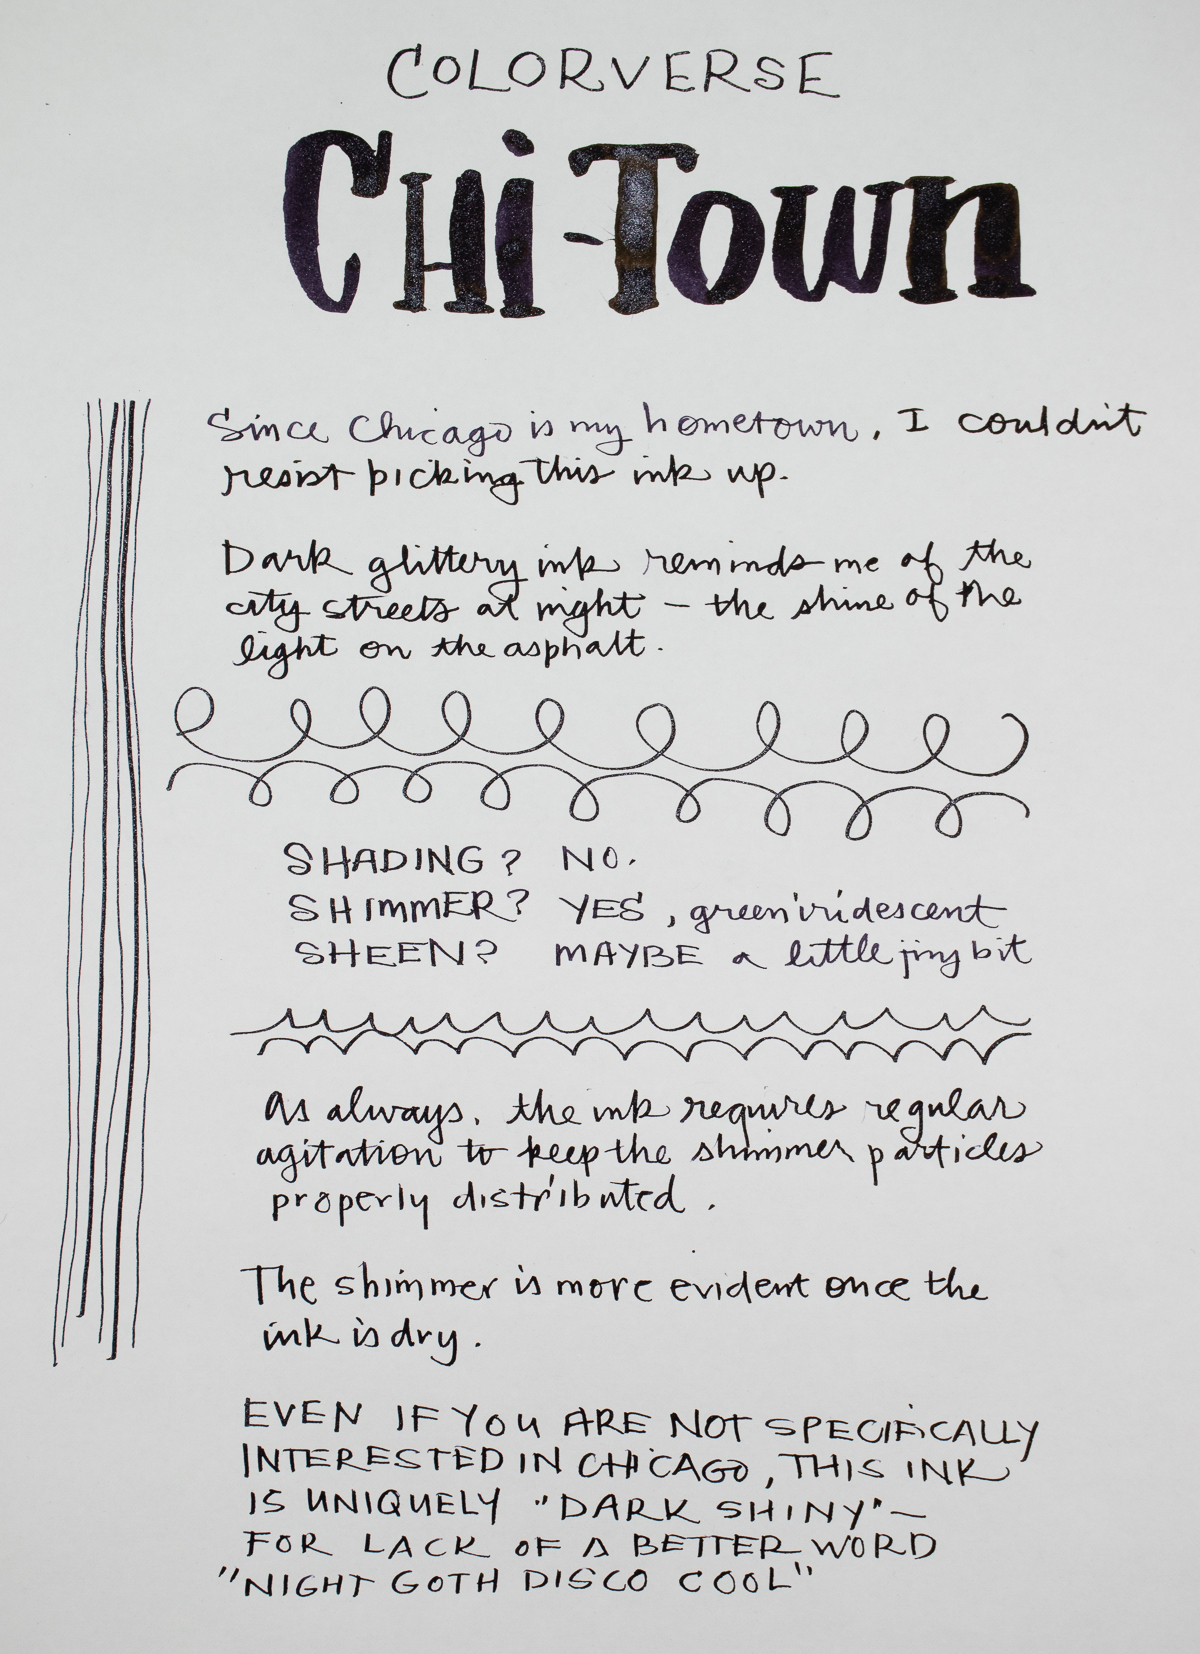 COLORVERSE
CHi-Town
Since Chicago is my hometown, I couldn't
resist picking this ink up.
Dark glittery ink reminds me of the
city streets at night – the shine of the
light on the asphalt.
SHADING? NO.
SHIMMER? YES, green iridescent
SHEEN? MAYBE a little tiny bit
As always, the ink requires regular
agitation to keep the shimmer particles
properly distributed.
The shimmer is more evident once the
ink is dry.
EVEN IF YOU ARE NOT SPECIFICALLY
INTERESTED IN CHICAGO, THIS INK
IS UNIQUELY "DARK SHINY" –
FOR LACK OF A BETTER WORD
"NIGHT GOTH DISCO COOL"